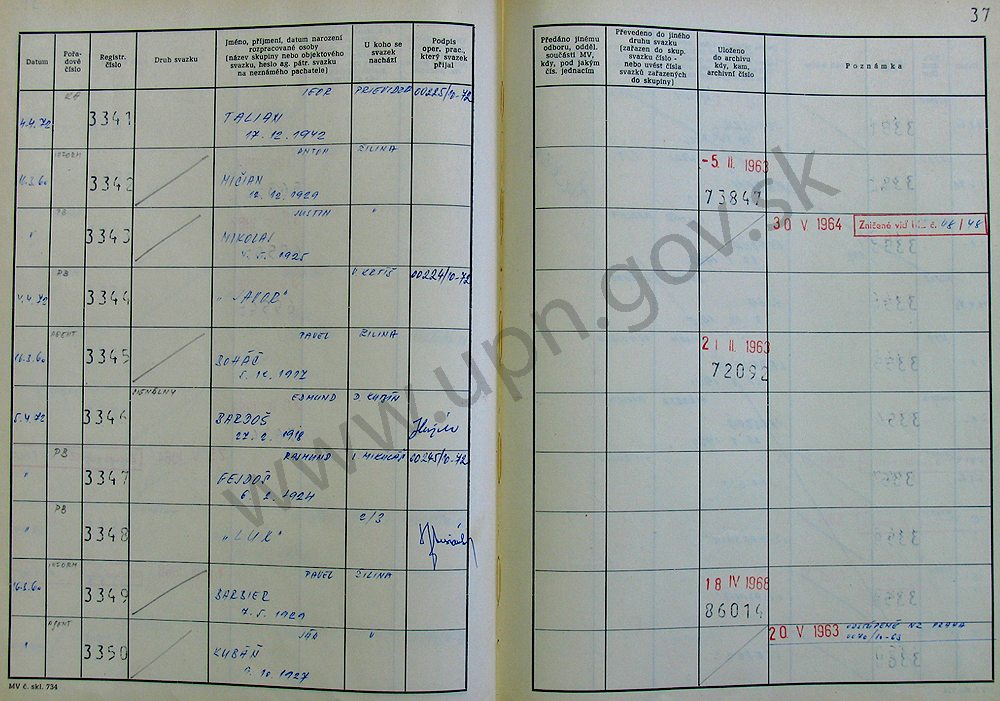 37
Datum
Pořadové číslo
Registr. číslo
Druh svazku
Jméno, příjmení, datum narození
rozpracované osoby
(název skupiny nebo objektového
svazku, heslo ag. pátr. svazku
na neznámého pachatele)
U koho se
svazek
nachází
Podpis
oper. prac.,
který svazek
přijal
Předáno jinému
odboru, odděl.
součásti MV,
kdy, pod jakým
čís. jednacím
Převedeno do jiného
druhu svazku
(zařazen do skup.
svazku číslo -
nebo uvést čísla
svazků zařazených
do skupiny)
Uloženo
do archivu
kdy, kam,
archivní číslo
Poznámka
KA IGOR PRIEVIDZA 00225/10-72
4.4.72 3341 TALIAN
17.12.1942
INFORM ANTON ŽILINA -5. II. 1963
16.3.60 3342 MIČIAN 73847
12.12.1929
PB JUSTIN " 30 V 1964 Zničené viď
" 3343 MIKOLAJ
1925
PB V KRTÍŠ 00224/10-72
4.4.72 3344
AGENT PAVEL ŽILINA 21 II. 1963
16.3.60 3345 BOHÁČ 72092
1927
EDMUND D. KUBÍN
5.4.72 3346 BARDOŠ
27.2.1918
PB RAJMUND L MIKULÁŠ 00245/10-72
" 3347 FEJDOŠ
6.2.1924
PB 2/3
" 3348 "LUX"
INFORM PAVEL ŽILINA 18 IV 1968
16.3.60 3349 BARBIER 86014
7.5.1929
AGENT JÁN " 20 V 1963 ODSTÚPENÉ NZ PRAHA
" 3350 KUBÁŇ
1927
MV č. skl. 734
www.upn.gov.sk